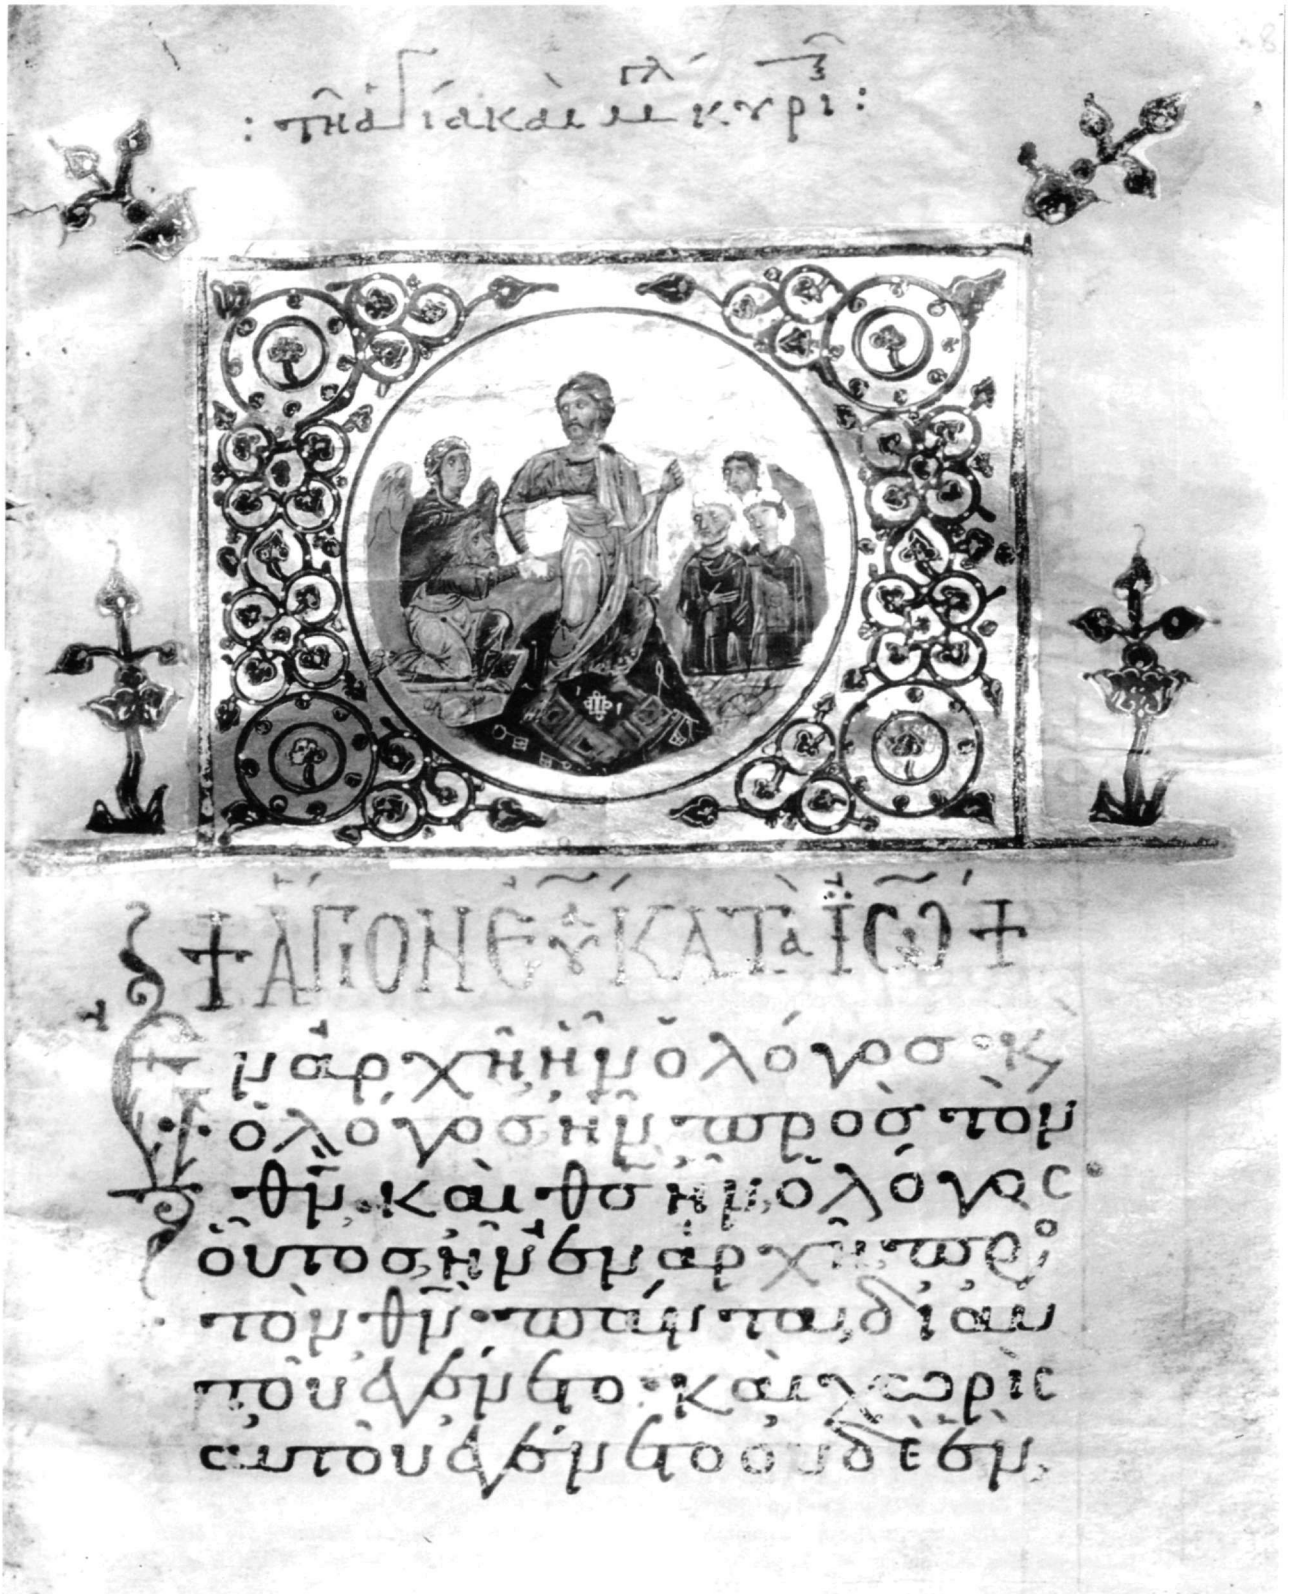 : τῆ ἁγία καὶ μ πλ κυρι :
+ ἍΓΙΟΝ ΕΥ ΚΑΤᾺ ἸΩ +
Ἐν ἀρχῆ ἦν ὁ λόγοσ · κ
ὁ λόγοσ ἦν πρὸσ τὸν
θν · καὶ θσ ἦν ὁ λόγος ·
οὗτοσ ἦν ἐν ἀρχῆ πρὸ
τὸν θν · πάντα δι αυ
τοῦ ἐγένετο · καὶ χωρὶς
αυτοῦ ἐγένετο οὐδὲ ἓν